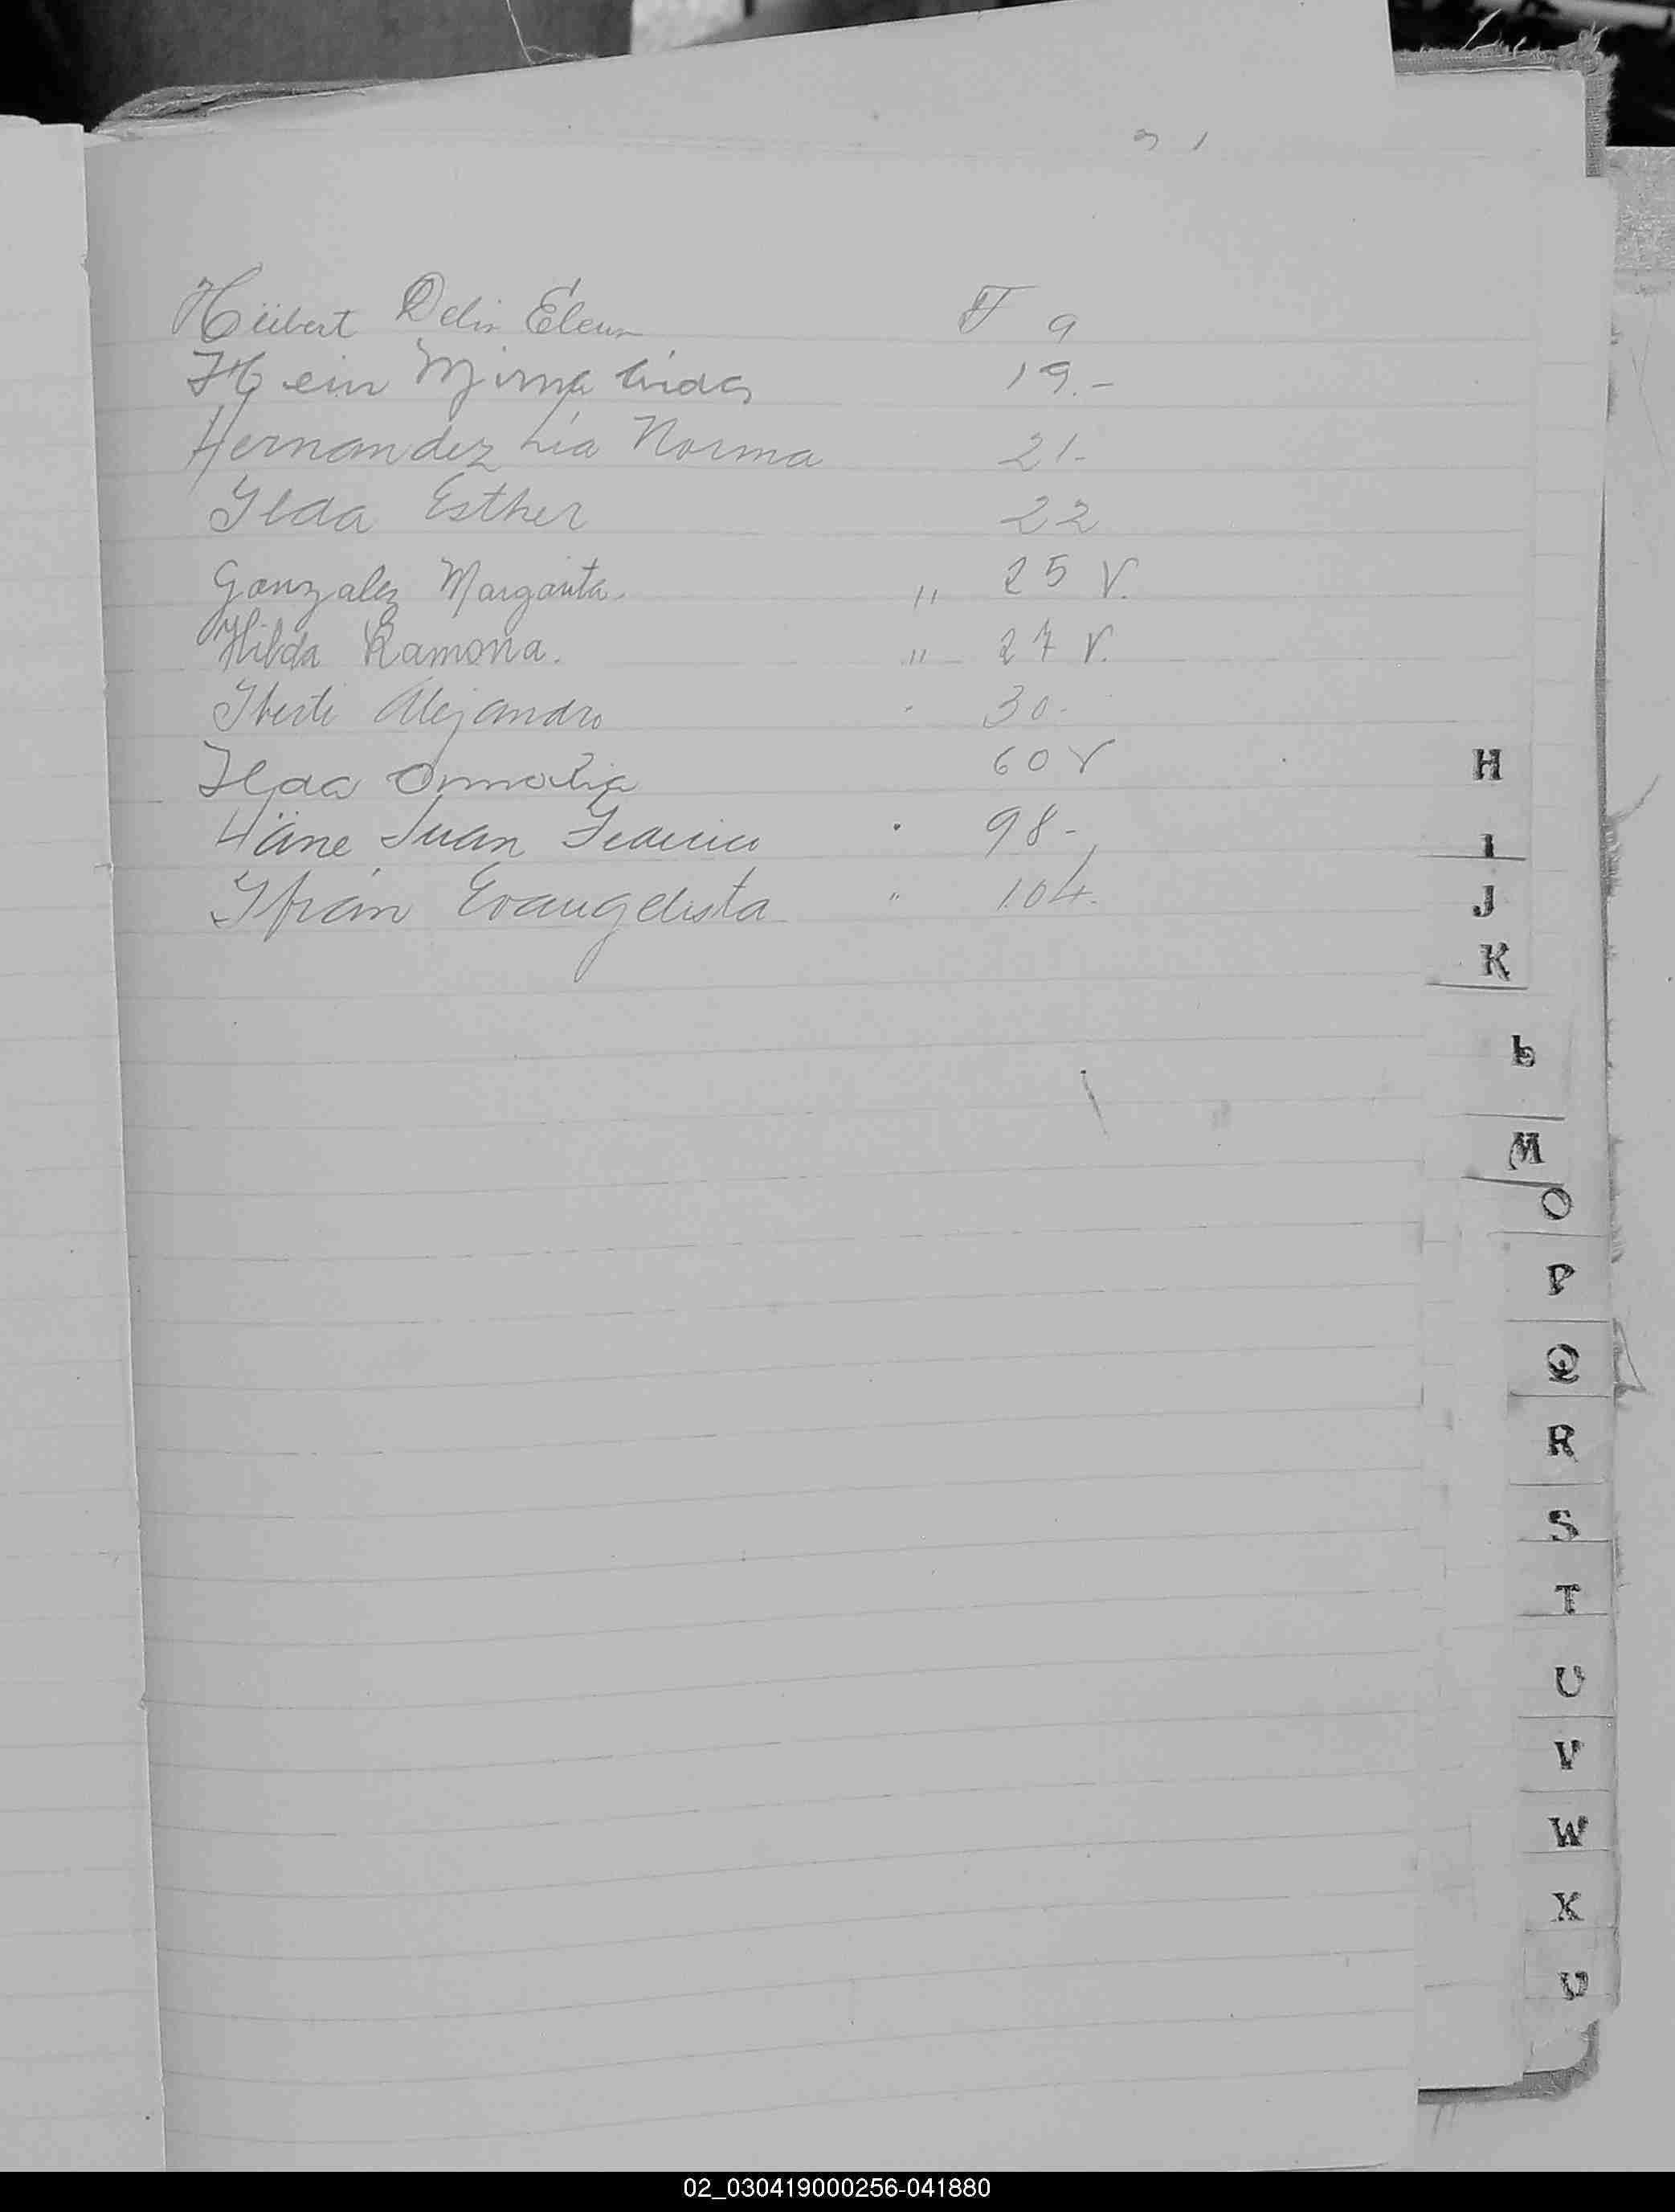 Hübert Delia Elena F 9
Hein Mirna Lida 19.-
Hernandez Lia Norma 21-
Ilda Esther 22
Gonzalez Margarita. " 25 V.
Hilda Ramona. " 27 V.
Iberti Alejandro 30.
Ilda 60 V
Häne Juan Federico " 98-
Ifran Evangelista " 104.
H
I
J
K
L
M
O
P
Q
R
S
T
U
V
W
X
02_030419000256-041880